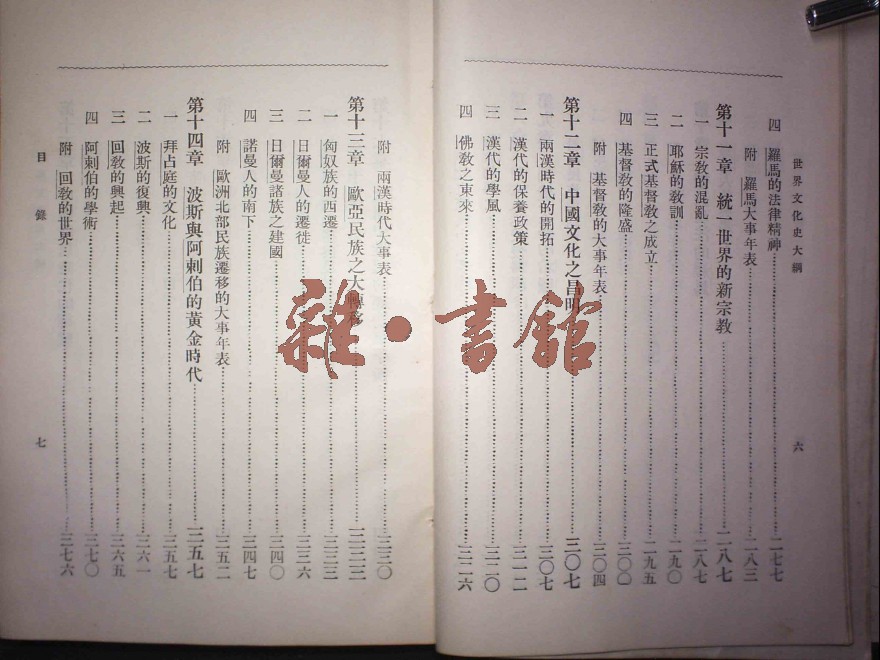 世界文化史大綱 六
四 羅馬的法律精神……二七七
附 羅馬大事年表……二八三
第十一章 統一世界的新宗教……二八七
一 宗教的混亂……二八七
二 耶穌的教訓……二九〇
三 正式基督教之成立……二九五
四 基督教的隆盛……三〇〇
附 基督教的大事年表……三〇四
第十二章 中國文化之昌明……三〇七
一 兩漢時代的開拓……三〇七
二 漢代的保養政策……三一二
三 漢代的學風……三二〇
四 佛教之東來……三二六
附 兩漢時代大事表……三三〇
第十三章 歐亞民族之大移……三三三
一 匈奴族的西遷……三三三
二 日爾曼人的遷徙……三三六
三 日爾曼諸族之建國……三四〇
四 諾曼人的南下……三四七
附 歐洲北部民族遷移的大事年表……三五二
第十四章 波斯與阿剌伯的黃金時代……三五七
一 拜占庭的文化……三五七
二 波斯的復興……三六一
三 回教的興起……三六五
四 阿剌伯的學術……三七〇
附 回教的世界……三七六
目錄 七
雜·書館